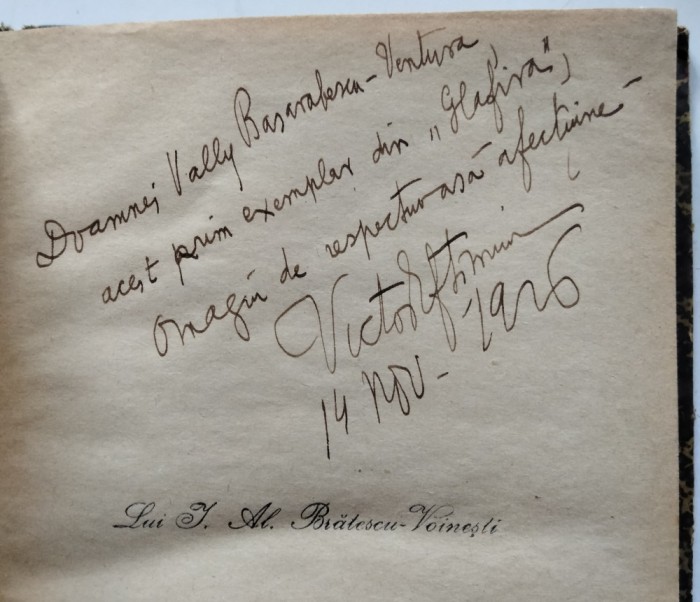 Doamnei Vally Basarabescu-Ventura,
acest prim exemplar din „Glafira”,
Omagiu de respectuoasă afecțiune
Victor Eftimiu
14 Nov. 1926
Lui I. Al. Brătescu-Voineşti